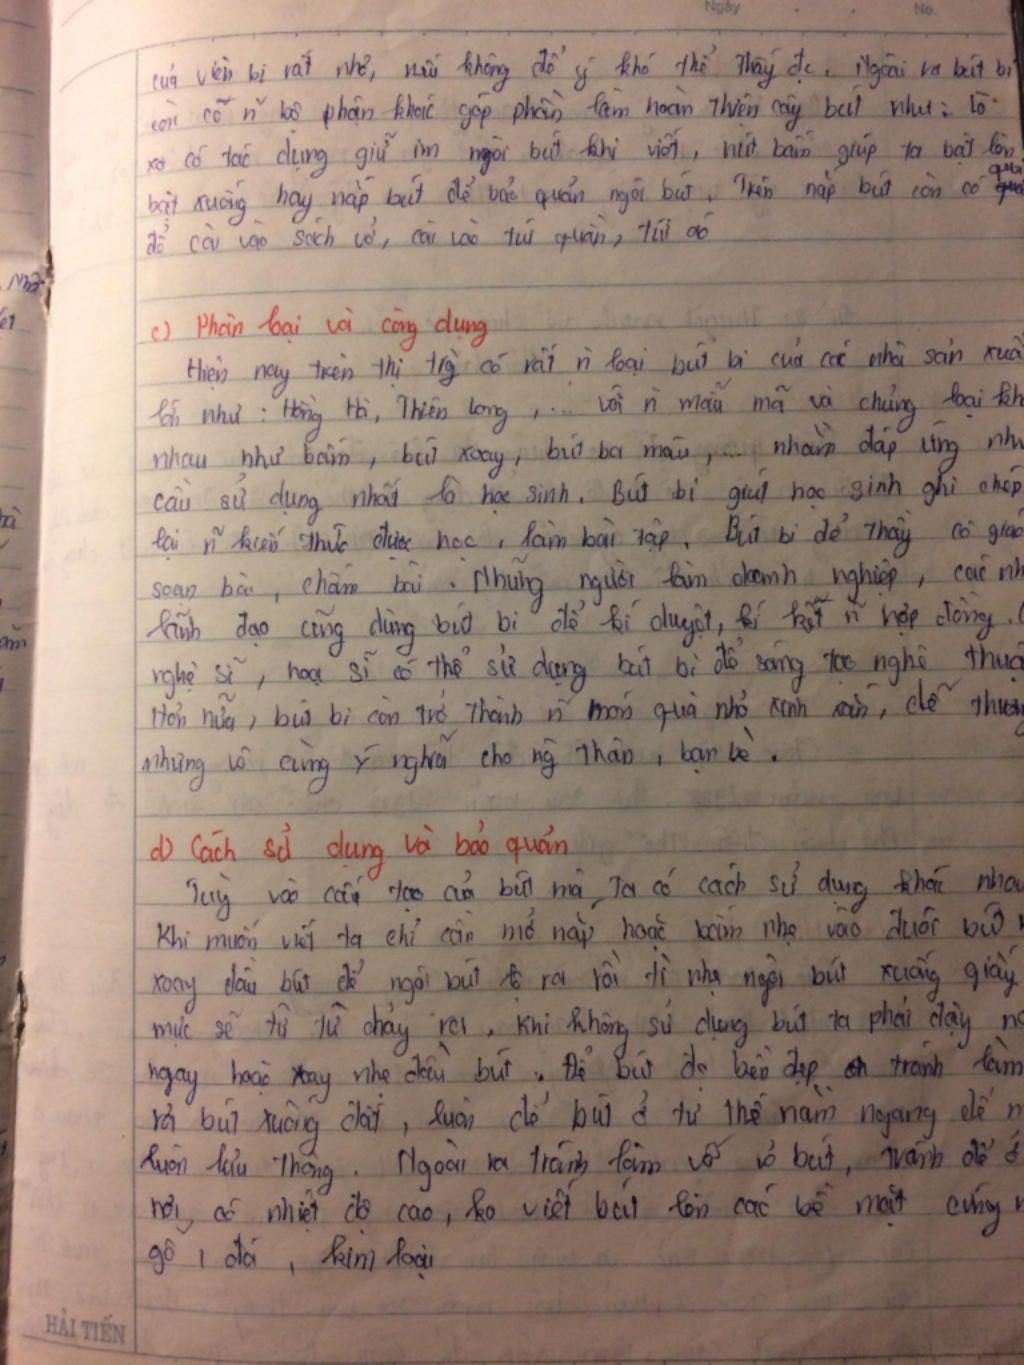 Ngày No.
của viên bi rất nhỏ, nếu không để ý khó thể thấy đc. Ngoài ra bút bi
còn có n̄ bộ phận khác góp phần làm hoàn thiện cây bút như: lò
xo có tác dụng giữ im ngòi bút khi viết, nút bấm giúp ta bật lên
bật xuống hay nắp bút để bảo quản ngòi bút. Trên nắp bút còn có quai
để cài vào sách vở, cài vào túi quần, túi áo
c) Phân loại và công dụng
Hiện nay trên thị trg có rất n̄ loại bút bi của các nhà sản xuấ
lớn như: Hồng Hà, Thiên Long, ... với n̄ mẫu mã và chủng loại kh
nhau như bấm, bút xoay, bút ba màu, ... nhằm đáp ứng nhu
cầu sử dụng nhất là học sinh. Bút bi giút học sinh ghi chép
lại n̄ kiến thức được học, làm bài tập. Bút bi để thầy cô giáo
soạn bài, chấm bài. Những người làm doanh nghiệp, các nh
lãnh đạo cũng dùng bút bi để kí duyệt, kí kết n̄ hợp đồng.
nghệ sĩ, hoạ sĩ có thể sử dụng bút bi để sáng tạo nghệ thuậ
Hơn nữa, bút bi còn trở thành n̄ món quà nhỏ xinh xắn, dễ thươn
nhưng vô cùng ý nghĩa cho ng̀ thân, bạn bè.
d) Cách sử dụng và bảo quản
Tuỳ vào cấu tạo cả bút mà ta có cách sử dụng khác nhau
Khi muốn viết ta chỉ cần mở nắp hoặc bấm nhẹ vào đuôi bút
xoay đầu bút để ngòi bút lộ ra rồi tì nhẹ ngòi bút xuống giấy
mực sẽ từ từ chảy ra. Khi không sử dụng bút ta phải đậy nắ
ngay hoặc xoay nhẹ đầu bút. Để bút đc bền đẹp tránh làm
rả bút xuống đất, luôn để bút ở tư thế nằm ngang để m
luôn lưu thông. Ngoài ra tránh làm vỡ vỏ bút, tránh để ở
nơi có nhiệt độ cao, ko viết bút lên các bề mặt cứng n
gỗ, đá, kim loại
HẢI TIẾN